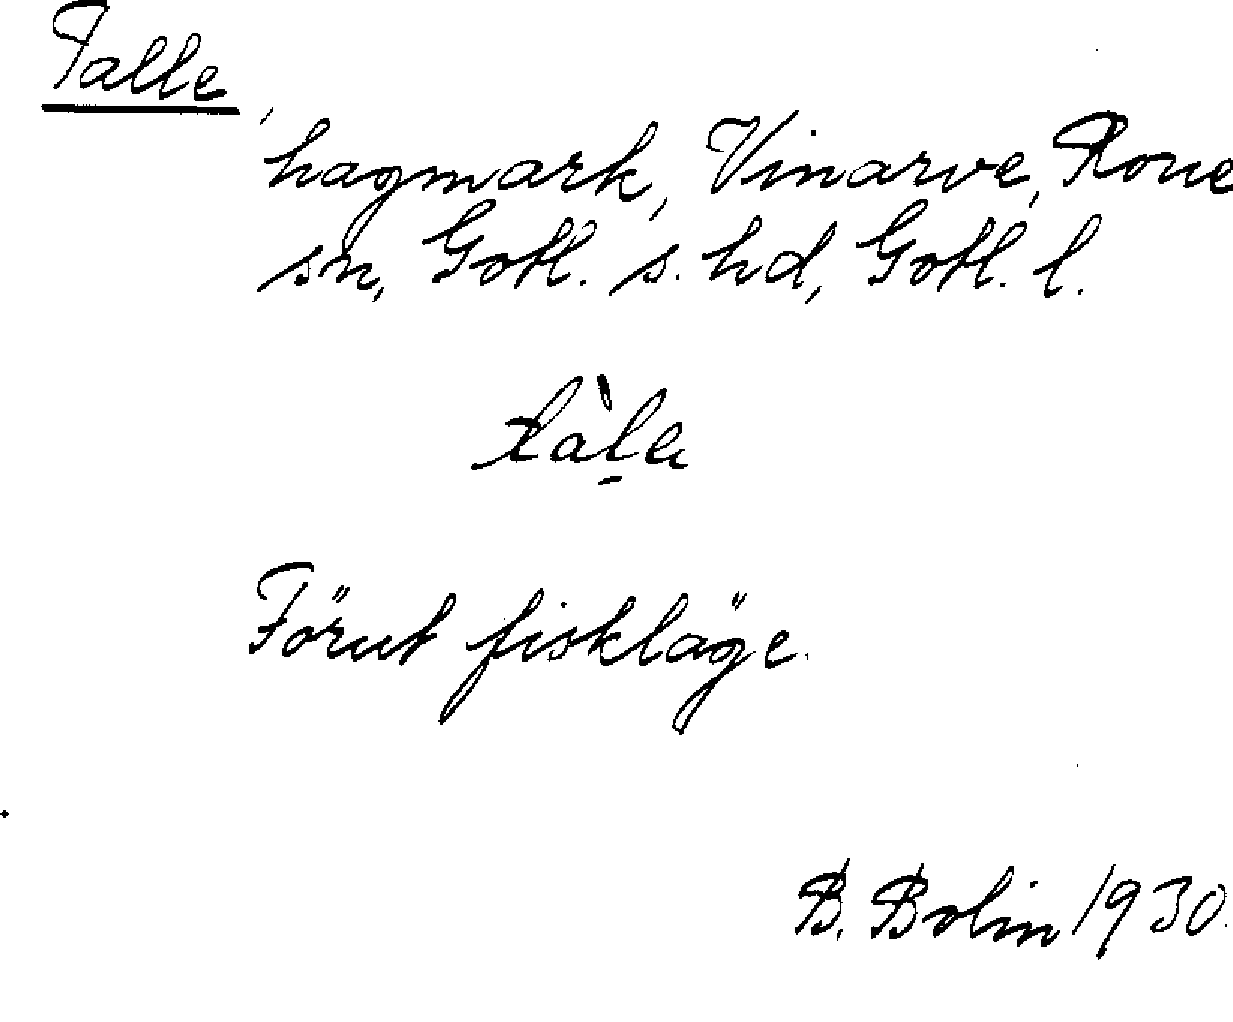 Talle,
hagmark, Vinarve, Rone
sn, Gotl. s. hd, Gotl. l.
tàl̠e
Förut fiskläge.
B. Bolin 1930.